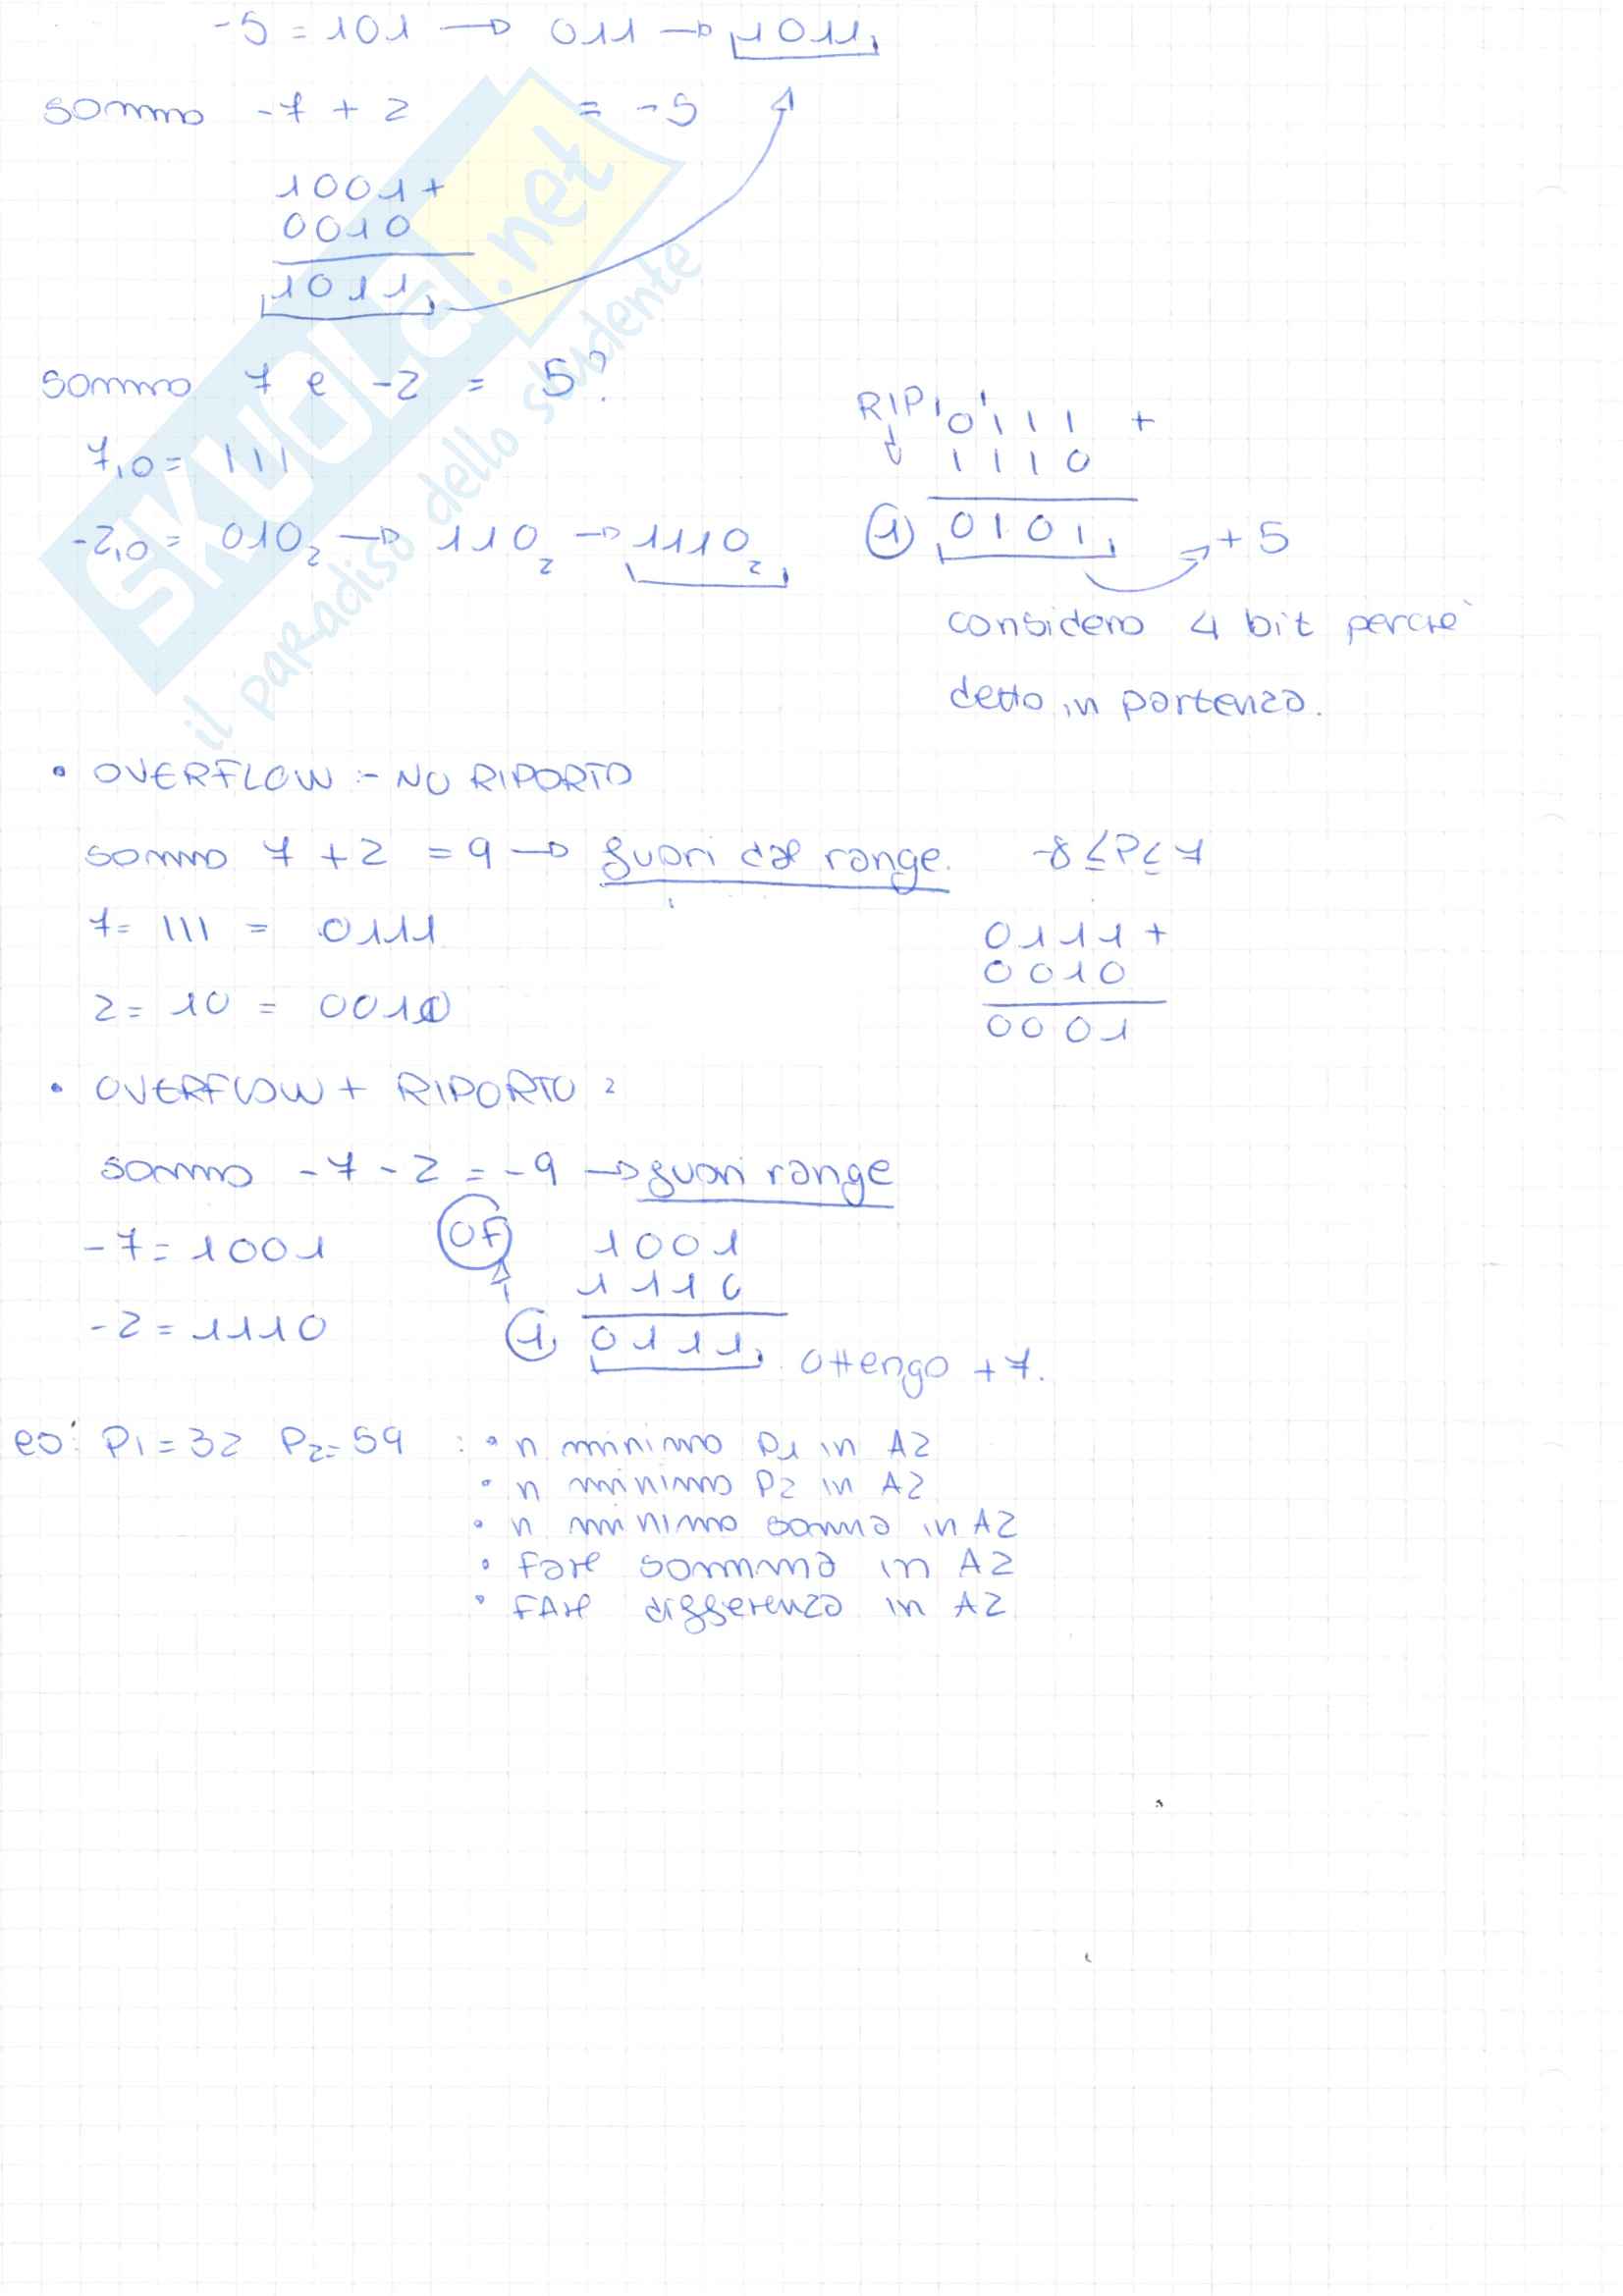 -5 = 101 → 011 → 1011
sommo -7 + 2 = -5
1001 +
0010
1011
sommo 7 e -2 = 5?
7₁₀ = 111
-2₁₀ = 010₂ → 110₂ → 1110₂
RIP 1 1
0111 +
1110
1 0101 → +5
considero 4 bit perchè
detto in partenza.
• OVERFLOW :- NO RIPORTO
sommo 7 + 2 = 9 → fuori dal range. -8 ≤ P ≤ 7
7 = 111 = 0111
2 = 10 = 0010
0111 +
0010
0001
• OVERFLOW + RIPORTO :
sommo -7 - 2 = -9 → fuori range
-7 = 1001
-2 = 1110
OF
1001
1110
1 0111 ottengo +7.
es: P1 = 32 P2 = 59 : • n minimo P1 in A2
• n minimo P2 in A2
• n minimo somma in A2
• fare somma in A2
• FARE differenza in A2
SKUOLa.net
il paradiso dello studente